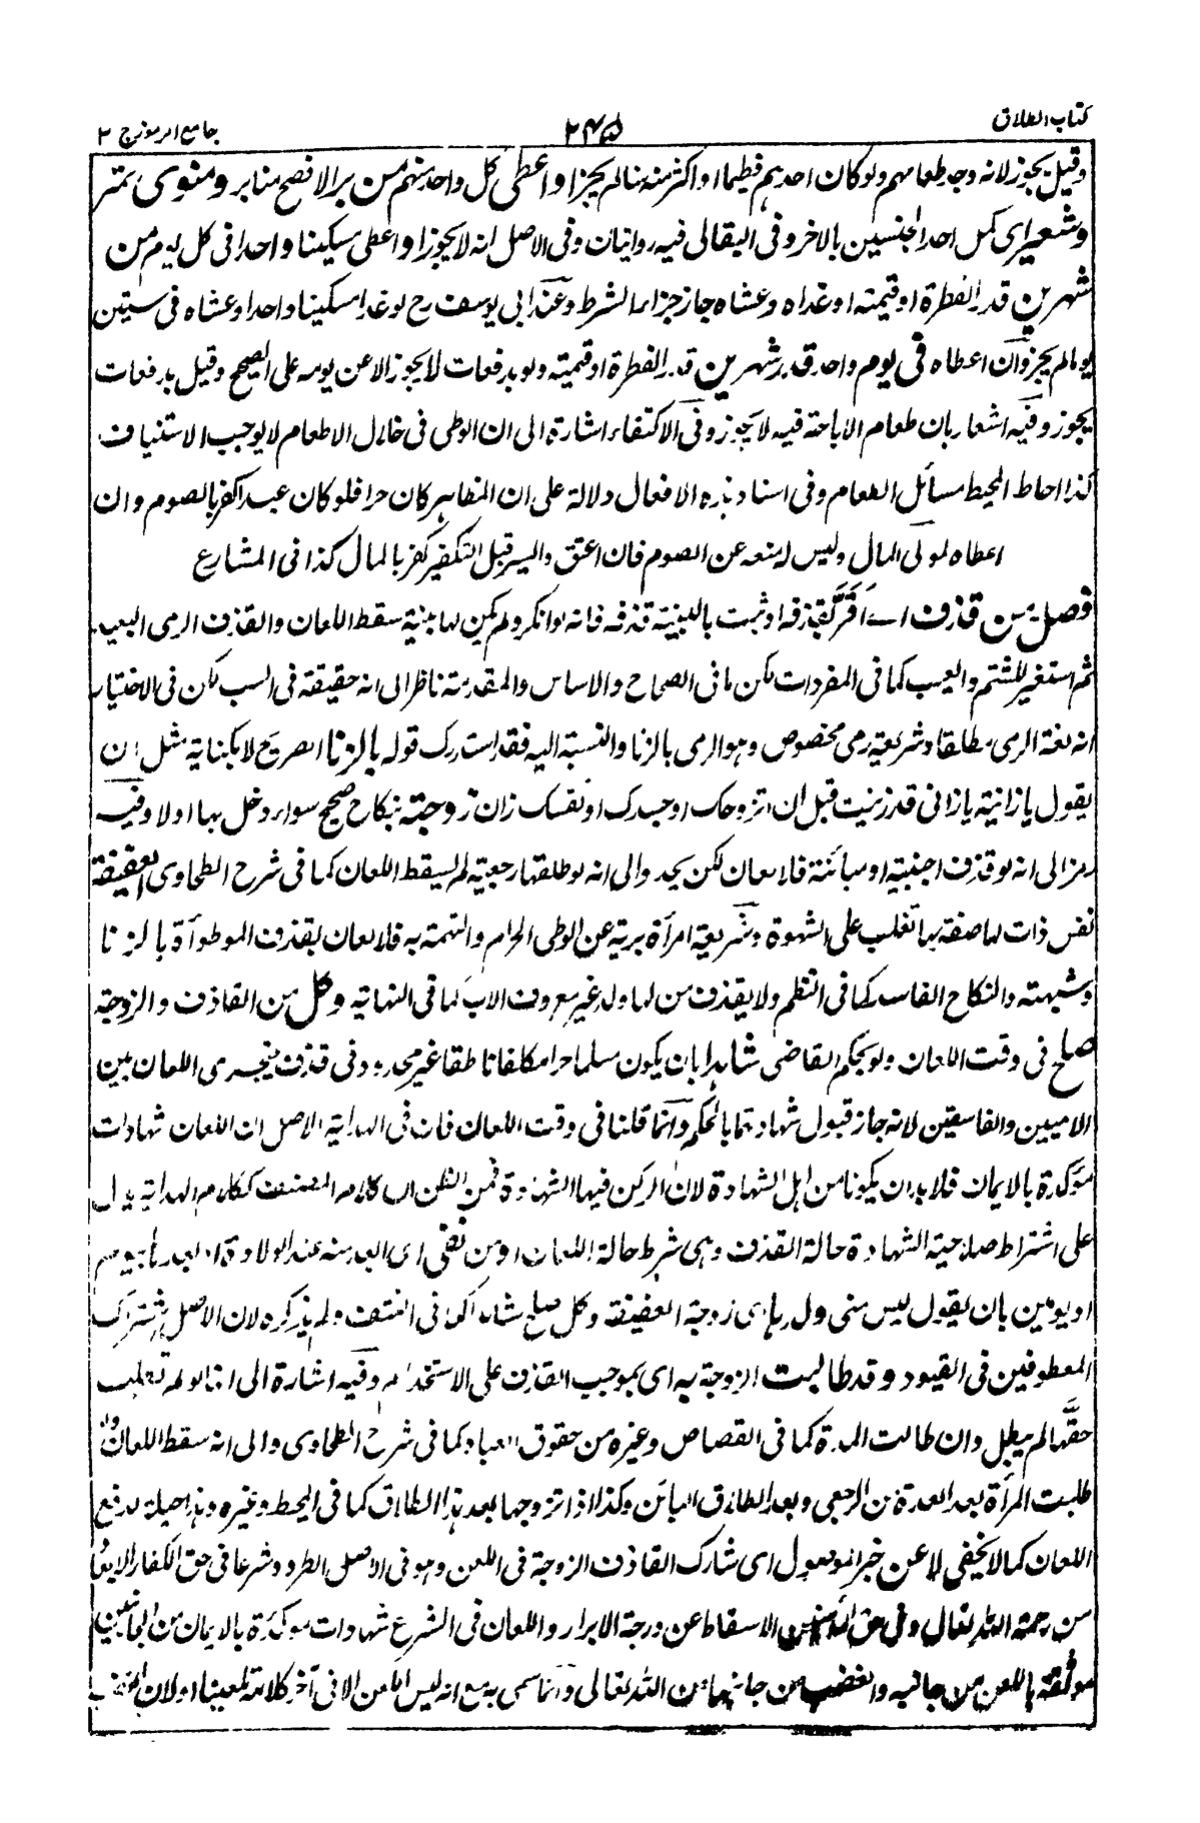 كتاب الطلاق
٢٤٥
جامع الرموز ج ٢
وقيل يجوز لانه وجد طعامهم ولو كان احدهم فطيما او اكثر منه سنا لم يجز او اعطى كل واحد منهم من بر الانصح منابر ومنوى تمر
وشعير اى كمل احد الجنسين بالاخر وفى البقالى فيه روايتان وفى الاصل انه لا يجوز او اعطى مسكينا واحدا فى كل يوم من
شهرين قدر الفطرة او قيمته او غداه وعشاه جاز جزاء الشرط وعند ابى يوسف رح لو غدا مسكينا واحدا وعشاه فى ستين
يوما لم يجز وان اعطاه فى يوم واحد قدر شهرين قدر الفطرة او قيمته ولو بدفعات لا يجوز الا عن يومه على الصحيح وقيل بدفعات
يجوز وفيه اشعار بان طعام الاباحة فيه لا يجوز وفى الاكتفاء اشارة الى ان الوطى فى خلال الاطعام لا يوجب الاستيناف
كذا احاط المحيط مسائل الطعام وفى اسناد هذه الافعال دلالة على ان المظاهر كان حرا فلو كان عبدا كفر بالصوم وان
اعطاه لمولى المال وليس له منعه عن الصوم فان اعتق وايسر قبل التكفير كفر بالمال كذا فى المشارع
فصل من قذف اى اقر بقذفه او ثبت بالبينة قذفه فانه لو انكر ولم يكن لها بينة سقط اللعان والقذف الرمى البعيد
ثم استعير للشتم والعيب كما فى المفردات لكن ما فى الصحاح والاساس والمقدمة ناظر الى انه حقيقة فى السب لكن فى الاختيار
انه لغة الرمى مطلقا وشريعة رمى مخصوص وهو الرمى بالزنا والنسبة اليه فقد استدرك قوله بالزنا الصريح لا بكناية مثل ان
يقول يا زانية يا زانى قد زنيت قبل ان اتزوجك او جسدك او نفسك زان زوجته بنكاح صحيح سواء دخل بها او لا وفيه
رمز الى انه لو قذف اجنبية او مبائنة فلا لعان لكن يحد والى انه لو طلقها رجعية لم يسقط اللعان كما فى شرح الطحاوى العفيفة
نفس ذات لها صفة بها تغلب على الشهوة وشريعة امرأة برية عن الوطى الحرام والتهمة به فلا لعان بقذف الموطوأة بالزنا
وشبهته والنكاح الفاسد كما فى النظم ولا بقذف من لها ولد غير معروف الاب كما فى النهاية وكل من القاذف والزوجة
صلح فى وقت اللعان ولو بحكم القاضى شاهدا بان يكون مسلما حرا مكلفا ناطقا غير محدود فى قذف فيجرى اللعان بين
الاعميين والفاسقين لانه جاز قبول شهادتهما بالحكم وانما قلنا فى وقت اللعان فان فى الهداية الاصل ان اللعان شهادات
مؤكدة بالايمان فلا بد ان يكونا من اهل الشهادة لان الركن فيها الشهادة فمن الظن ان كلام المصنف ككلام الهداية يدل
على اشتراط صلاحية الشهادة حالة القذف وهى شرط حالة اللعان او من نفى اى الولد منه عند الولادة او بعدها بيوم
او يومين بان يقول ليس منى ولدها اى زوجة العفيفة وكل صلح شاهدا كما فى النتف ولم يذكره لان الاصل اشتراك
المعطوفين فى القيود وقد طالبت الزوجة به اى بموجب القذف على الاستخدام وفيه اشارة الى انها لو لم تطلب
حقها لم يبطل وان طالت المدة كما فى القصاص وغيره من حقوق العباد كما فى شرح الطحاوى والى انه سقط اللعان وان
طلبت المرأة بعد العدة من الرجعى وبعد الطلاق البائن وكذا اذا تزوجها بعد هذا الطلاق كما فى المحيط وغيره وهذا حيلة لدفع
اللعان كما لا يخفى لاعن خبر الموصول اى شارك القاذف الزوجة فى اللعن وهو فى الاصل الطرد وشرعا فى حق الكفار الابعاد
من رحمة الله تعالى وفى حق المؤمنين الاسقاط عن درجة الابرار واللعان فى الشرع شهادات مؤكدة بالايمان من الجانبين
موثقة باللعن من جانبه والغضب من جانبها من الله تعالى وانما سمى به مع انه ليس اللعن الا فى آخر كلامه تغليبا او لان الغضب